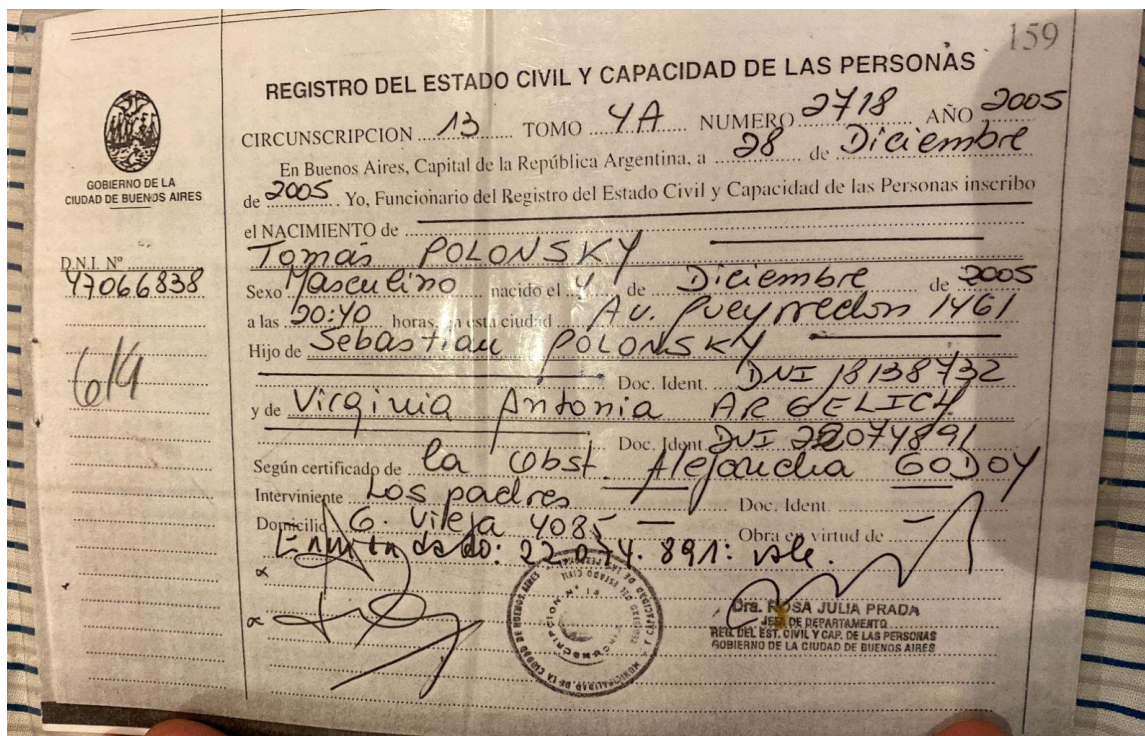 159
REGISTRO DEL ESTADO CIVIL Y CAPACIDAD DE LAS PERSONAS
CIRCUNSCRIPCION 13 TOMO 4A NUMERO 2718 AÑO 2005
En Buenos Aires, Capital de la República Argentina, a 28 de Diciembre
de 2005. Yo, Funcionario del Registro del Estado Civil y Capacidad de las Personas inscribo
el NACIMIENTO de
Tomás POLONSKY
Sexo Masculino nacido el 4 de Diciembre de 2005
a las 20:40 horas, en esta ciudad Av. Pueyrredon 1461
Hijo de Sebastian POLONSKY
Doc. Ident. DNI 18138732
y de Virginia Antonia ARGELICH
Doc. Ident DNI 22074891
Según certificado de la Obst. Alejandra GODOY
Interviniente Los padres Doc. Ident.
Domicilio G. Vilela 4085 Obra en virtud de
Enmendado: 22.074.891: vale.
GOBIERNO DE LA
CIUDAD DE BUENOS AIRES
D.N.I. Nº
47066838
Dra. ROSA JULIA PRADA
JEFA DE DEPARTAMENTO
REG. DEL EST. CIVIL Y CAP. DE LAS PERSONAS
GOBIERNO DE LA CIUDAD DE BUENOS AIRES
MUNICIPALIDAD DE LA CIUDAD DE BUENOS AIRES